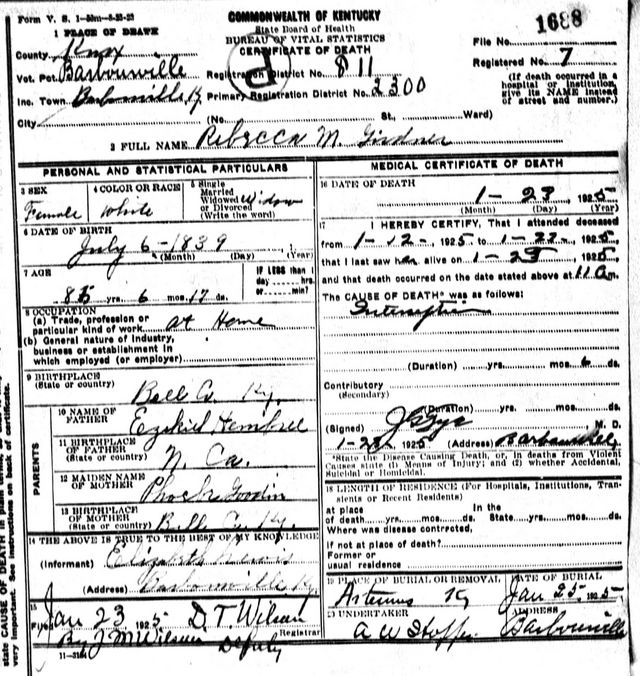 Form V. S. 1-50m-8-25-23
COMMONWEALTH OF KENTUCKY
State Board of Health
BUREAU OF VITAL STATISTICS
CERTIFICATE OF DEATH
1688
File No.
1 PLACE OF DEATH
County Knox
Registered No. 7
Vot. Pct. Barbourville
Registration District No. 811
(If death occurred in a hospital or institution, give its NAME instead of street and number.)
Inc. Town Barbourville Ky
Primary Registration District No. 2300
City (No. St., Ward)
2 FULL NAME Rebecca M. Girdner
PERSONAL AND STATISTICAL PARTICULARS
3 SEX
Female
4 COLOR OR RACE
White
5 Single
Married
Widowed Widow
or Divorced
(Write the word)
6 DATE OF BIRTH
July 6-1839
(Month) (Day) (Year)
7 AGE
IF LESS than 1
day hrs.
or min?
85 yrs. 6 mos. 17 ds.
8 OCCUPATION
(a) Trade, profession or
particular kind of work at Home
(b) General nature of Industry,
business or establishment in
which employed (or employer)
9 BIRTHPLACE
(State or country)
Bell Co Ky.
PARENTS
10 NAME OF
FATHER
Ezekiel Hembree
11 BIRTHPLACE
OF FATHER
(State or country)
N. Ca.
12 MAIDEN NAME
OF MOTHER
Goodin
13 BIRTHPLACE
OF MOTHER
(State or country)
Bell Co Ky.
14 THE ABOVE IS TRUE TO THE BEST OF MY KNOWLEDGE
(Informant) Elizabeth Lewis
(Address) Barbourville Ky.
15
Filed Jan 23 1925 D. T. Wilson
Registrar
By J M Wilson Deputy
11-3184
MEDICAL CERTIFICATE OF DEATH
16 DATE OF DEATH
1-23 1925
(Month) (Day) (Year)
17 I HEREBY CERTIFY, That I attended deceased
from 1-12-, 1925 to 1-22-, 1925
that I last saw her alive on 1-23 1925,
and that death occurred on the date stated above at 11 am.
The CAUSE OF DEATH* was as follows:
(Duration) yrs. mos. 6 ds.
Contributory
(Secondary)
(Duration) yrs. mos. ds.
(Signed) M. D.
1-23, 1925 (Address) Barbourville
*State the Disease Causing Death, or, in deaths from Violent
Causes state (1) Means of Injury; and (2) whether Accidental,
Suicidal or Homicidal.
18 LENGTH OF RESIDENCE (For Hospitals, Institutions, Transients or Recent Residents)
at place
of death yrs. mos. ds.
In the
State yrs. mos. ds.
Where was disease contracted,
if not at place of death?
Former or
usual residence
19 PLACE OF BURIAL OR REMOVAL
Artemus Ky
DATE OF BURIAL
Jan 25 1925
20 UNDERTAKER
A W
ADDRESS
Barbourville
state CAUSE OF DEATH in plain
very important. See instructions on back of certificate.